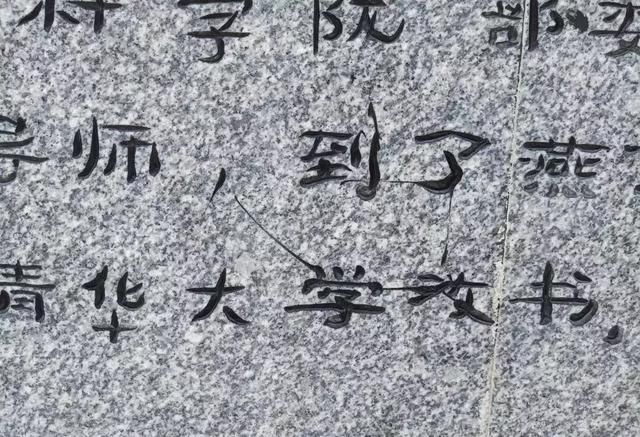 科学院 部委
导师，到了燕
清华大学 书。